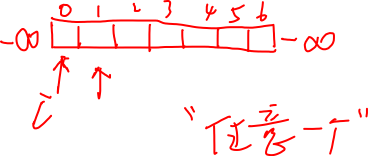 0 1 2 3 4 5 6
-∞ -∞
i
"任意一个"